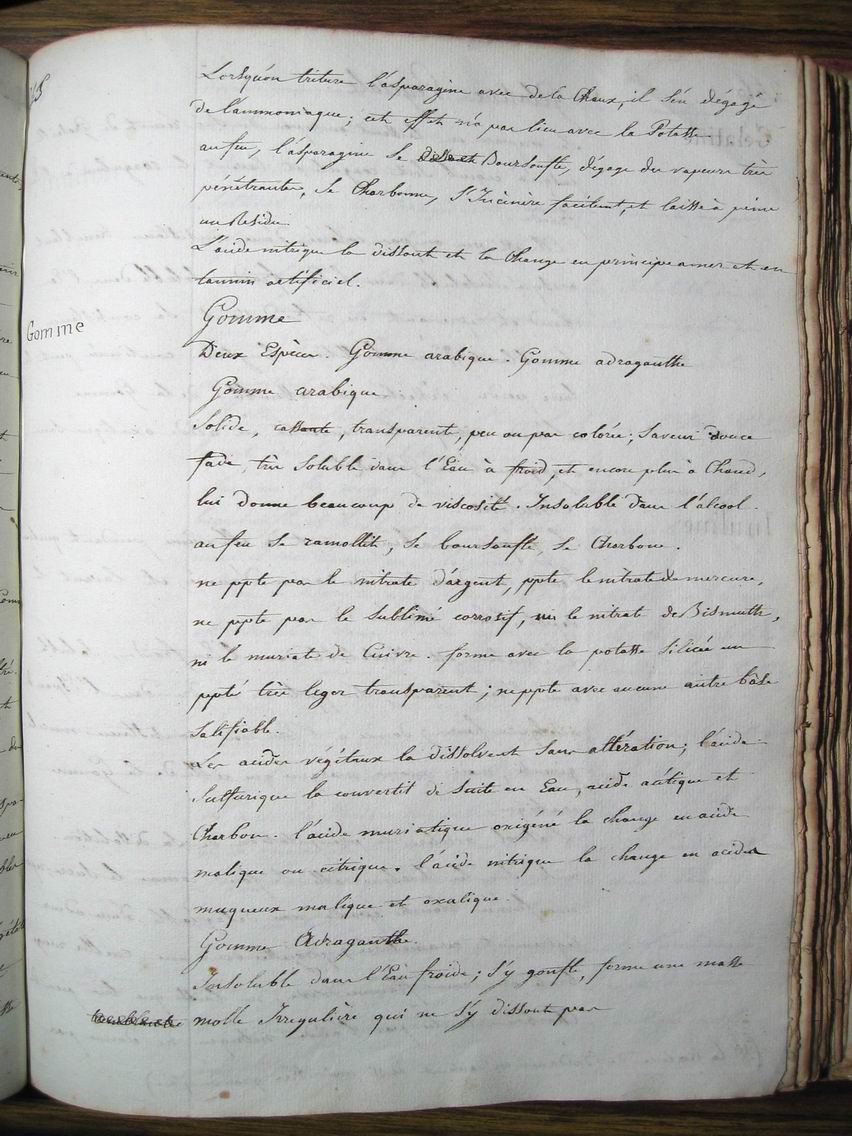 Lorsqu'on triture l'asparagine avec de la Chaux, il s'en dégage
de l'ammoniaque; cet effet n'a pas lieu avec la Potasse
au feu, l'asparagine se Boursoufle, dégage des vapeurs très
pénétrantes, se Charbonne, s'Incinère facilemt, et laisse à peine
un Residu.
L'acide nitrique la dissout et la Change en principe amer et en
tannin artificiel.
Gomme
Gomme
Deux Espèces. Gomme arabique. Gomme adraganthe
Gomme arabique
Solide, cassante, transparente, peu ou pas colorée; Saveur douce
fade, très Soluble dans l'Eau à froid, et encore plus à Chaud,
lui donne beaucoup de viscosité. Insoluble dans l'alcool.
au feu se ramollit, se boursoufle, se Charbone.
ne ppte pas le nitrate d'argent, ppte le nitrate de mercure,
ne ppte pas le Sublimé corrosif, ni le nitrate de Bismuth,
ni le muriate de Cuivre. forme avec la potasse Silicée un
ppté très leger transparent; ne ppte avec aucune autre bâse
Salifiable.
Les acides végétaux la dissolvent Sans altération; l'acide
Sulfurique la convertit de Suite en Eau, acide acétique et
Charbon. l'acide muriatique oxigéné la change en acide
malique ou citrique. l'acide nitrique la change en acides
muqueux malique et oxalique.
Gomme Adraganthe.
Insoluble dans l'Eau froide; s'y gonfle, forme une masse
molle Irregulière qui ne s'y dissout pas